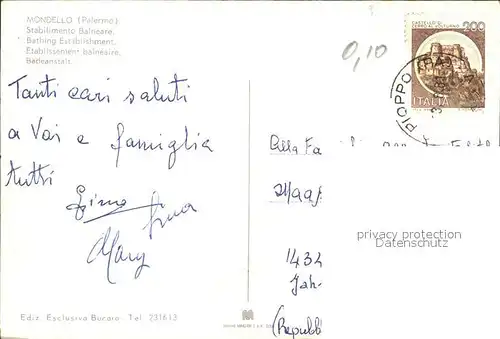 MONDELLO (Palermo)
Stabilimento Balneare.
Bathing Establishment.
Etablissement balnéaire.
Badeanstalt.
0,10
CASTELLO DI
CERRO AL VOLTURNO
200
ITALIA
PIOPPO (PA)
Tanti cari saluti
a Voi e famiglia
tutti
Mary
Alla Fa
1434
Jah-
(Repubbl
privacy protection
Datenschutz
Ediz. Esclusiva Bucaro - Tel. 231613